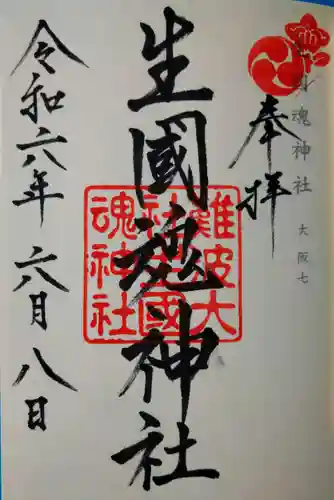 奉拝
生國魂神社
令和六年 六月八日
難波大
社生國
魂神社
魂神社 大阪七